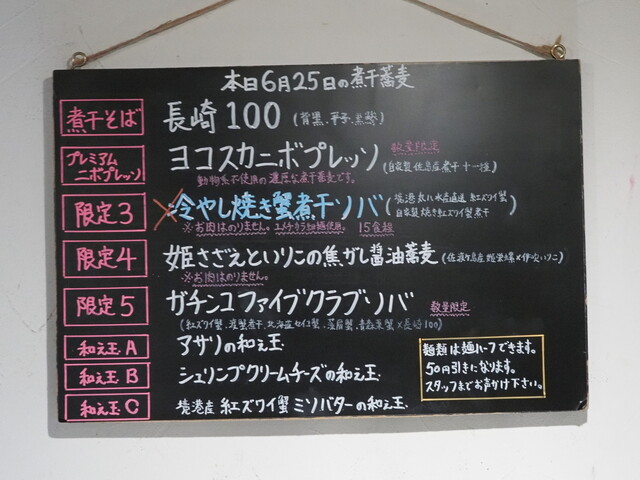 本日6月25日の煮干蕎麦
煮干そば 長崎100 (背黒、平子、
プレミアムニボプレッソ ヨコスカニボプレッソ 数量限定 (自家製 佐島産煮干
動物系不使用の濃厚な煮干蕎麦です。
限定3 ×冷やし焼き蟹煮干ソバ (境港 水産直送 紅ズワイ蟹 自家製 焼き紅ズワイ蟹煮干)
※お肉はのりません。 使用。 15食程
限定4 姫さざえといりこの焦がし醤油蕎麦 (佐渡ヶ島産 姫栄螺×伊吹いりこ)
※お肉はのりません。
限定5 ガチンコファイブクラブソバ 数量限定
(紅ズワイ蟹、渡蟹煮干、北海道セイコ蟹、 ×長崎100)
和え玉A アサリの和え玉
和え玉B シュリンプクリームチーズの和え玉
和え玉C 境港産 紅ズワイ蟹ミソバターの和え玉
麺類は麺ハーフできます。
50円引きになります。
スタッフまでお声かけ下さい。